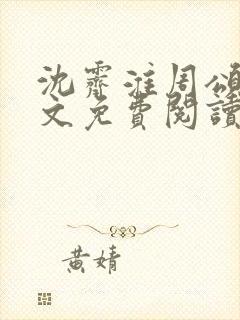 沈霽淮周頌
文免費閱讀
黃婧